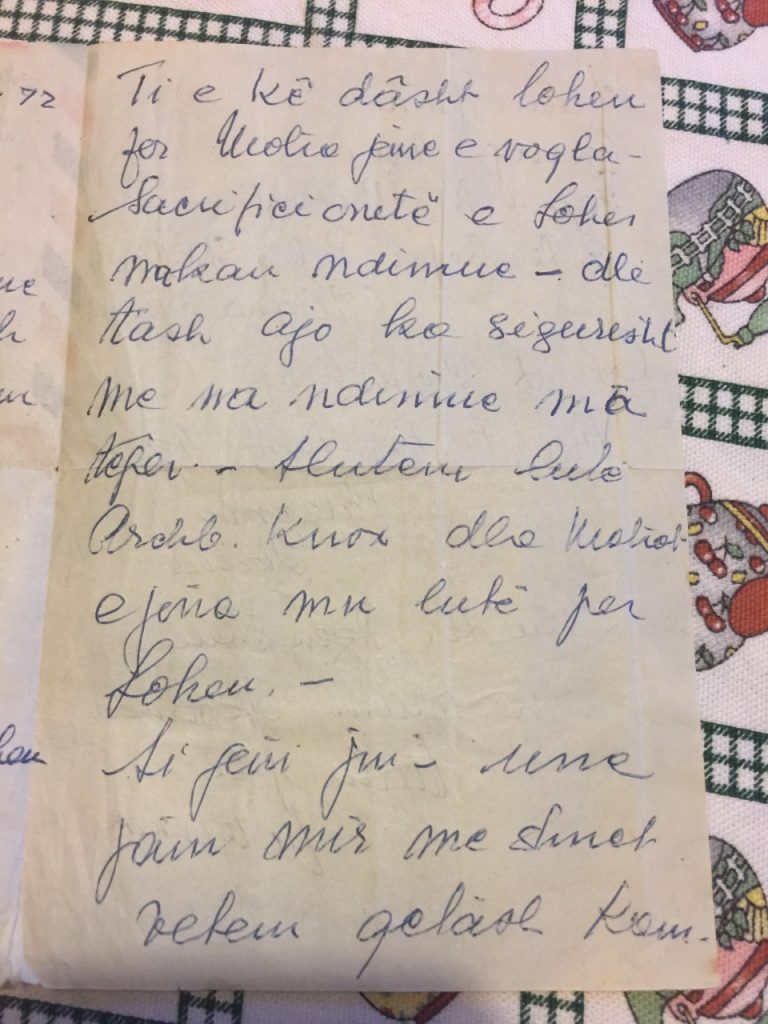 72
Ti e kë dâsht loken
for Motra jeme e vogla-
Sacrificionetë e Lokes
makan ndimue - dhe
tash Ajo ka sigurisht
me na ndimue mâ
tëper. - Lutëm
Archb. Knox dhe Motrat
e jona mu lutë per
Loken. -
Si jeni ju - une
jâm mir me
vetem gelâsh kam.